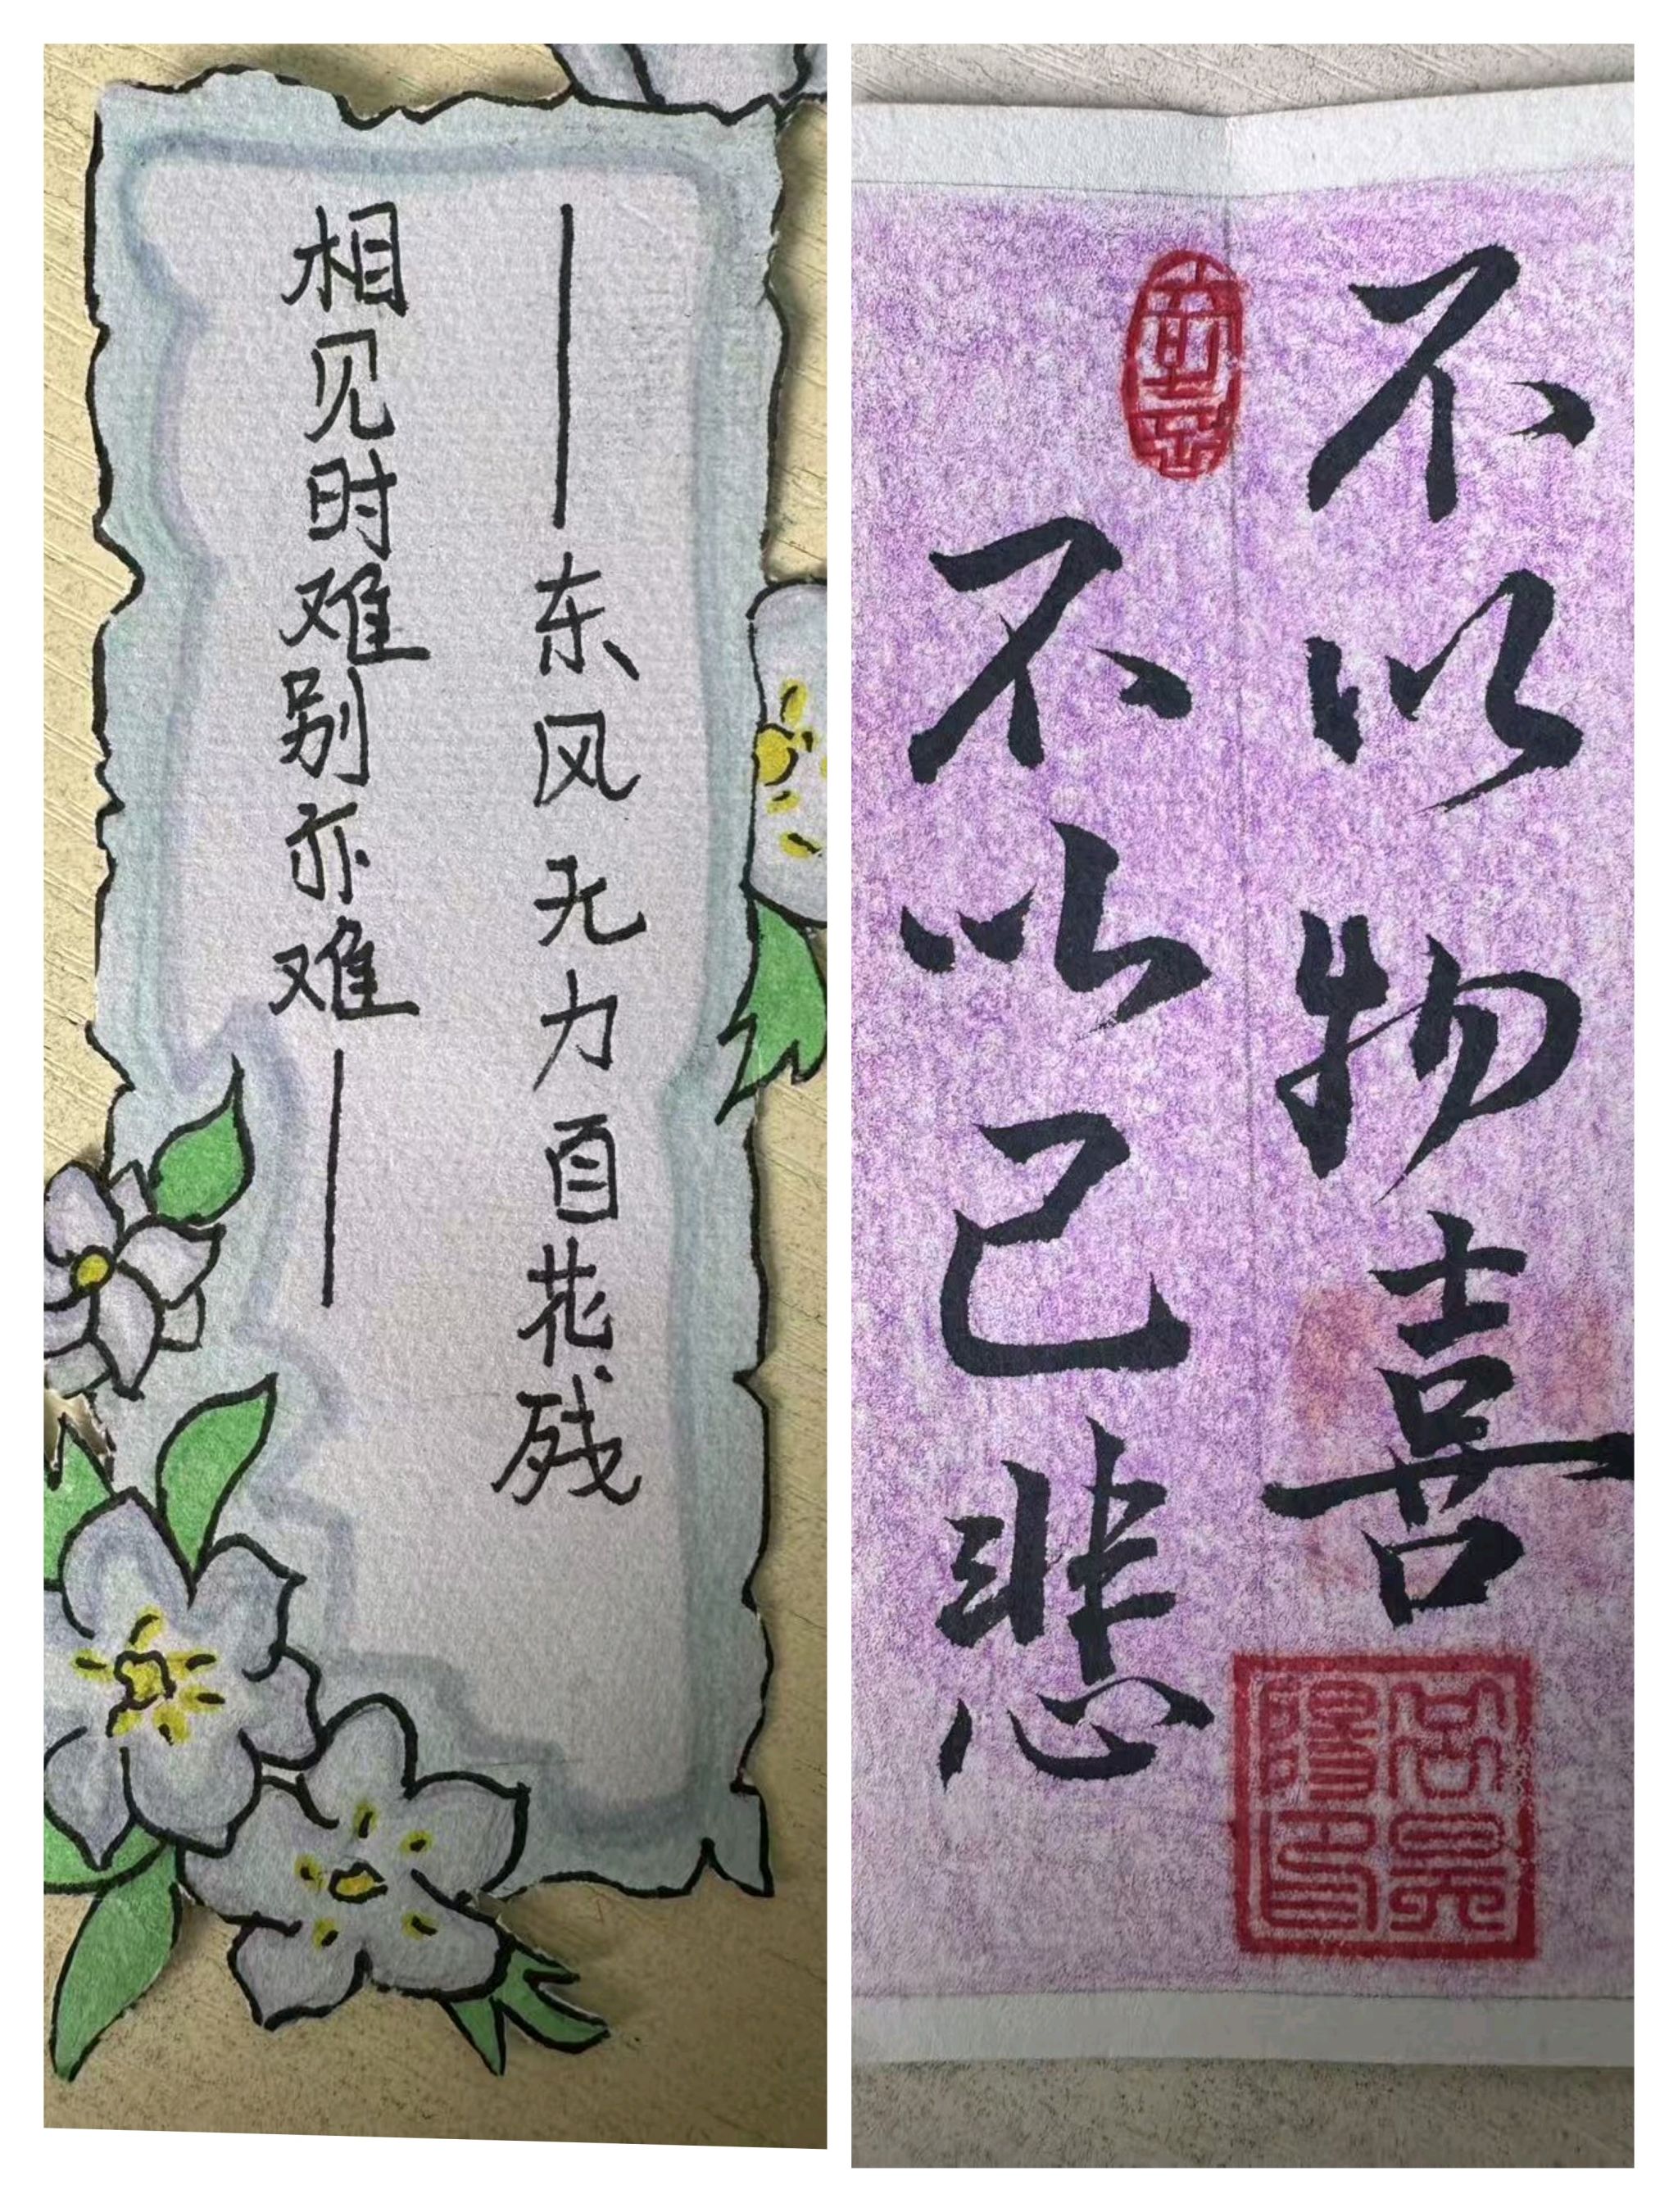 相见时难别亦难——
——东风无力百花残
不以物喜
不以己悲